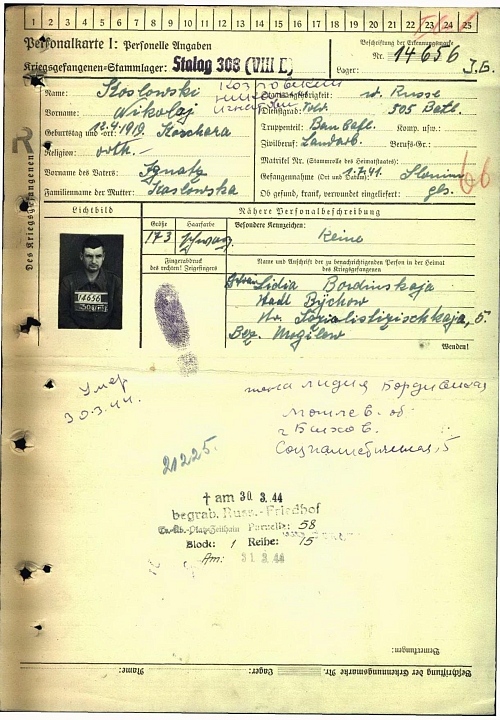 1 2 3 4 5 6 7 8 9 10 11 12 13 14 15 16 17 18 19 20 21 22 23 24 25
Personalkarte I: Personelle Angaben
Beschriftung der Erkennungsmarke
Nr. 14656
Kriegsgefangenen-Stammlager: Stalag 308 (VIII E)
Lager:
Des Kriegsgefangenen
Name: Koslowski
Козловский
Staatsangehörigkeit: w. Russe
Vorname: Nikolaj
николай
игнатович
Dienstgrad: Sold. 505 Batl.
Geburtstag und -ort: 12.4.1919. Koschara
Truppenteil: Bau Batl. Komp. usw.:
Religion: orth.
Zivilberuf: Landarb. Berufs-Gr.:
Matrikel Nr. (Stammrolle des Heimatstaates):
Vorname des Vaters: Ignatz
Gefangennahme (Ort und Datum): 1.7.41. Slonim
Familienname der Mutter: Koslowska
Ob gesund, krank, verwundet eingeliefert: ges.
66
Lichtbild
Nähere Personalbeschreibung
Größe
Haarfarbe
Besondere Kennzeichen:
173
schwarz
Keine
Fingerabdruck
des rechten! Zeigefingers
Name und Anschrift der zu benachrichtigenden Person in der Heimat
des Kriegsgefangenen
14656
Lidia Bordinskaja
Stadt Bychow
str. Sozialistizischkaja, 5.
Bez. Mogilew
Wenden!
Умер
30.3.44.
жена лидия Бордианская
Могилев. об
г Быхов.
Социалистическая, 5
21225.
† am 30 3.44
begrab. Russ.-Friedhof
Tr.-Üb.-Platz Zeithain Parzelle: 58
Block: 1 Reihe: 15
Am: 31 3.44
Bemerkungen:
Beschriftung der Erkennungsmarke Nr. Lager: Name: